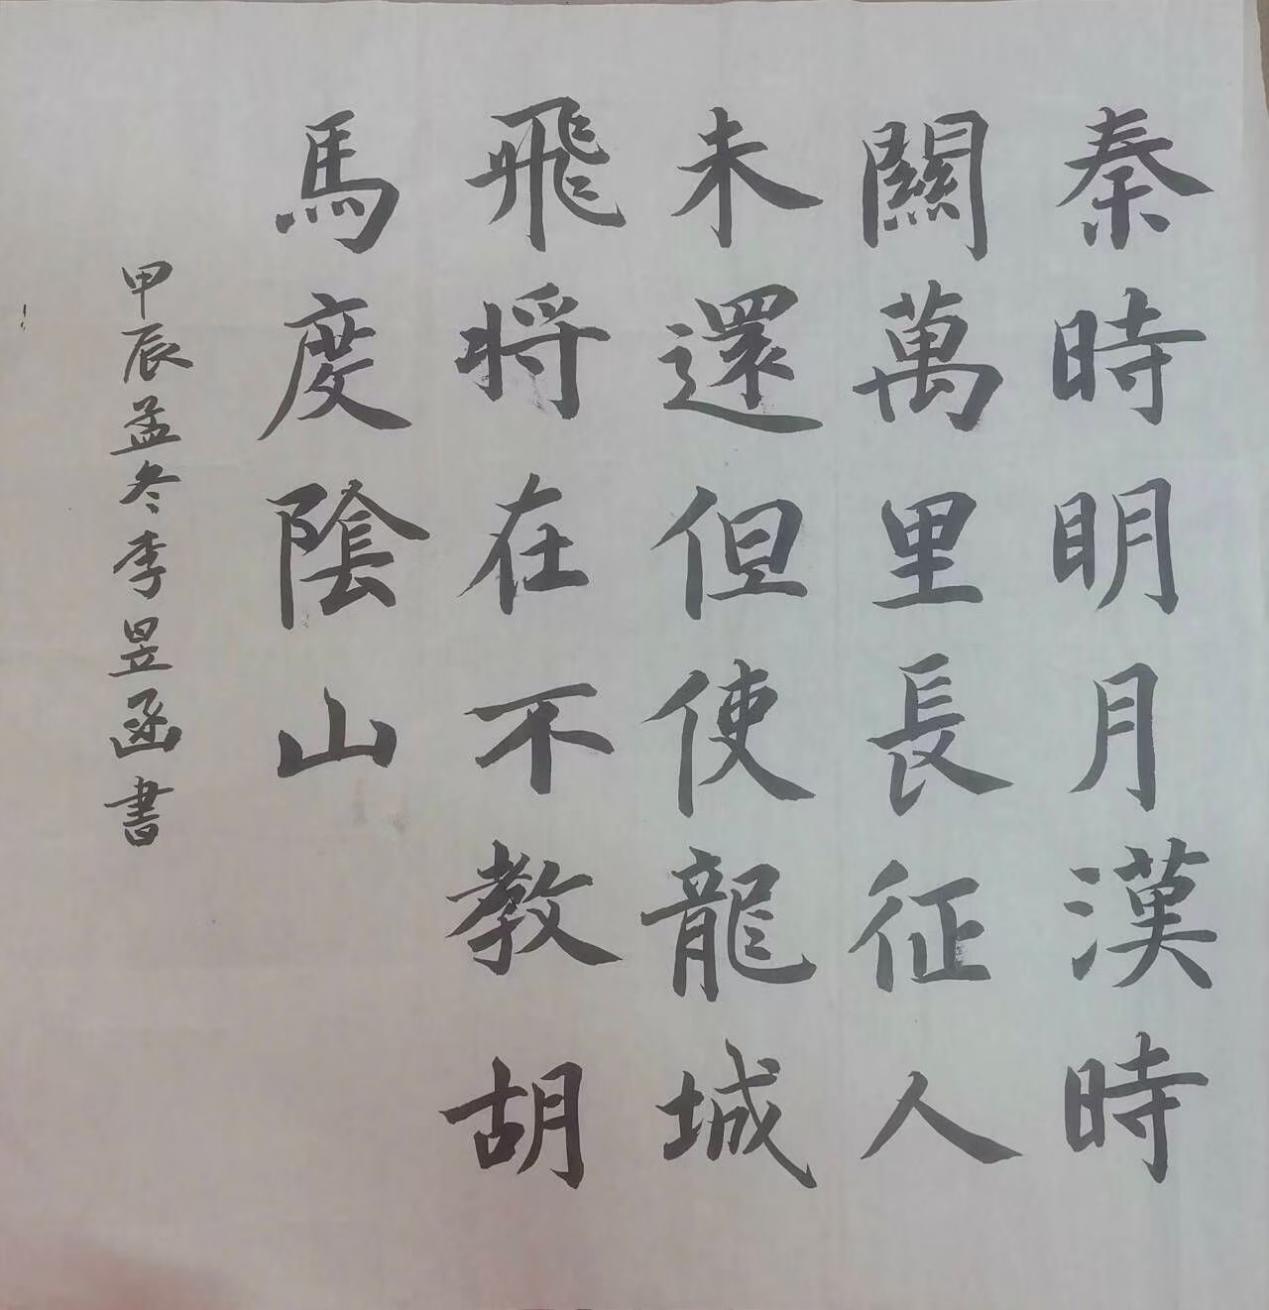 秦時明月漢時
關萬里長征人
未還但使龍城
飛将在不教胡
馬度陰山
甲辰孟冬李昱函書